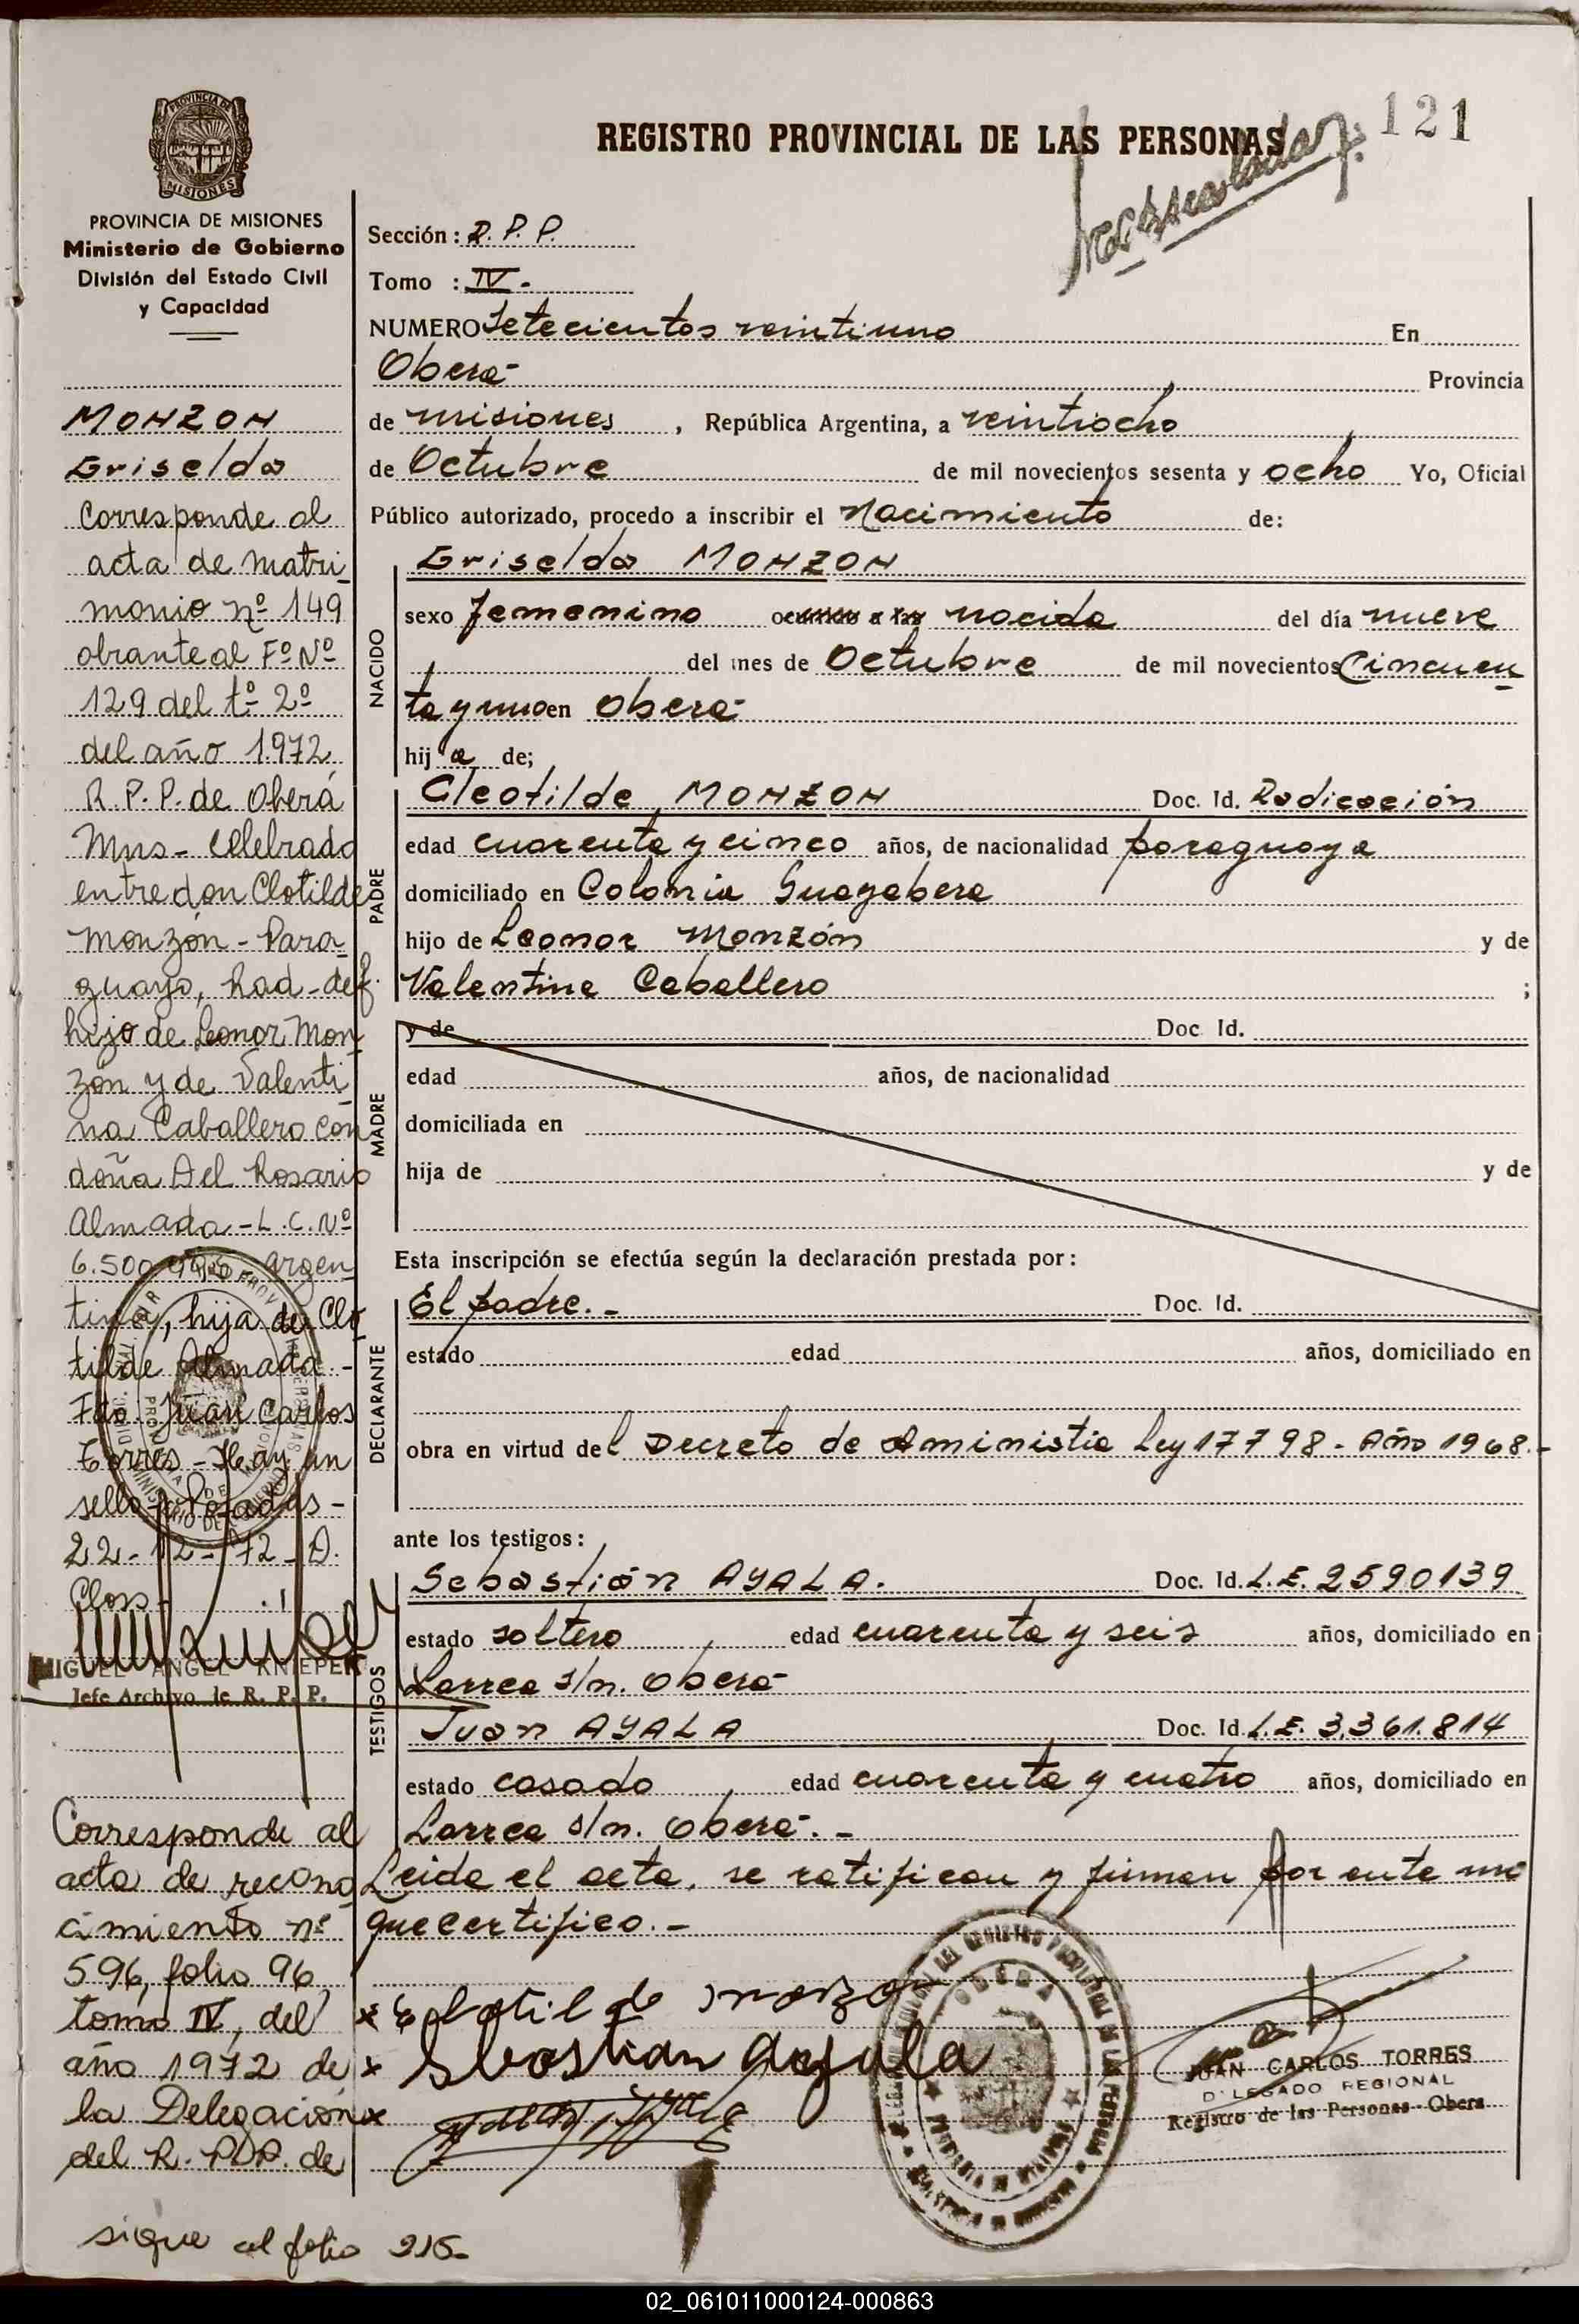 REGISTRO PROVINCIAL DE LAS PERSONAS
121
PROVINCIA DE
MISIONES
PROVINCIA DE MISIONES
Ministerio de Gobierno
División del Estado Civil
y Capacidad
MONZON
Griselda
Corresponde al
acta de matri
monio nº 149
obrante al Fº Nº
129 del tº 2º
del año 1.972,
R.P.P. de Oberá
Mns - Celebrado
entre don Clotilde
Monzón - Para
guayo, Rad. def.
hijo de Leonor Mon
zón y de Valenti
na Caballero con
doña Del Rosario
Almada - L.C. Nº
6.500 argen
tina, hija de Clo
tilde Almada -
Fdo. Juan Carlos
Torres - Hay un
sello - Posadas -
22-12-72 - D.
Closs -
MIGUEL ANGEL KNIEPER
Jefe Archivo de R. P. P.
Corresponde al
acta de recono
cimiento nº
596, folio 96,
tomo IV, del
año 1972 de
la Delegación
del R.P.P. de
sigue al folio 215-
Sección : R. P. P.
Tomo : IV -
NUMERO Setecientos veintiuno En
Oberá - Provincia
de Misiones , República Argentina, a veintiocho
de Octubre de mil novecientos sesenta y ocho Yo, Oficial
Público autorizado, procedo a inscribir el Nacimiento de:
NACIDO
Griselda MONZON
sexo femenino nacida del día nueve
del mes de Octubre de mil novecientos Cincuen
ta y uno en Oberá -
hij a de;
PADRE
Cleotilde MONZON Doc. Id. Radicación
edad cuarenta y cinco años, de nacionalidad paraguaya
domiciliado en Colonia Guayabera
hijo de Leonor Monzón y de
Valentina Caballero ;
MADRE
y de Doc. Id.
edad años, de nacionalidad
domiciliada en
hija de y de
Esta inscripción se efectúa según la declaración prestada por :
DECLARANTE
El padre. - Doc. Id.
estado edad años, domiciliado en
obra en virtud del Decreto de Aministia Ley 17798 - Año 1968. -
ante los testigos :
TESTIGOS
Sebastián AYALA. Doc. Id. L.E. 2590139
estado soltero edad cuarenta y seis años, domiciliado en
Larrea s/n. Oberá -
Juan AYALA Doc. Id. L.E. 3.361.814
estado casado edad cuarenta y cuatro años, domiciliado en
Larrea s/n. Oberá. -
Leida el acta, se ratifican y firman por ante mí
que certifico. -
Sebastian Ayala
JUAN CARLOS TORRES
DELEGADO REGIONAL
Registro de las Personas - Obera
02_061011000124-000863